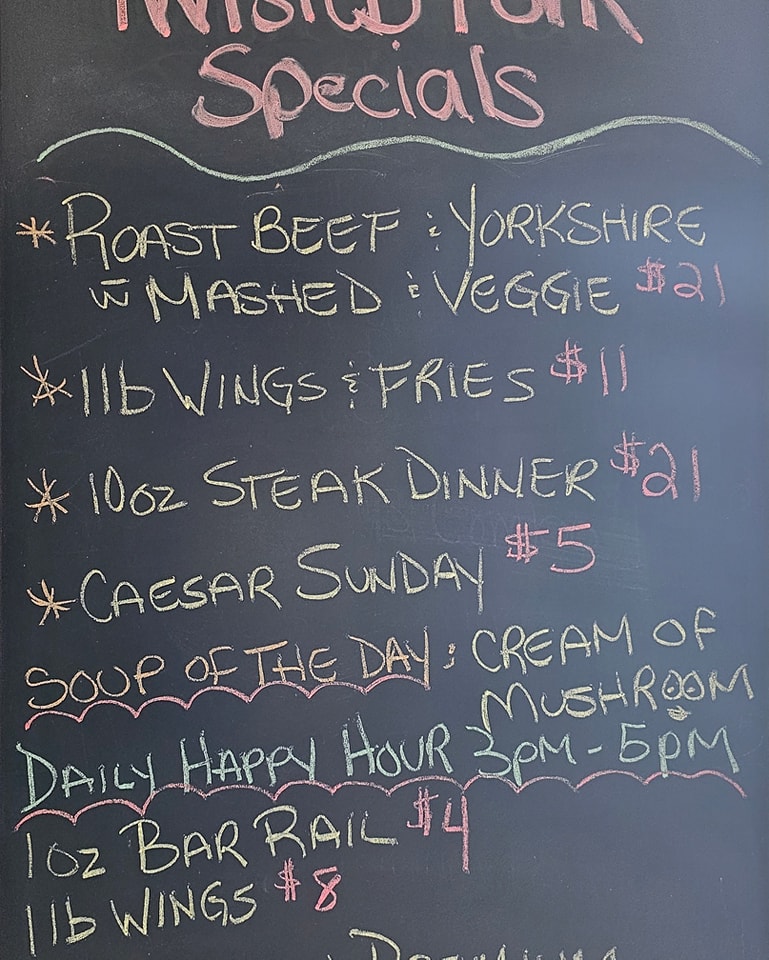 Specials
* ROAST BEEF & YORKSHIRE
w̄ MASHED & VEGGIE $21
* 1lb WINGS & FRIES $11
* 10oz STEAK DINNER $21
* CAESAR SUNDAY $5
SOUP OF THE DAY: CREAM OF
MUSHROOM
DAILY HAPPY HOUR 3pm - 5pm
1oz BAR RAIL $4
1lb WINGS $8